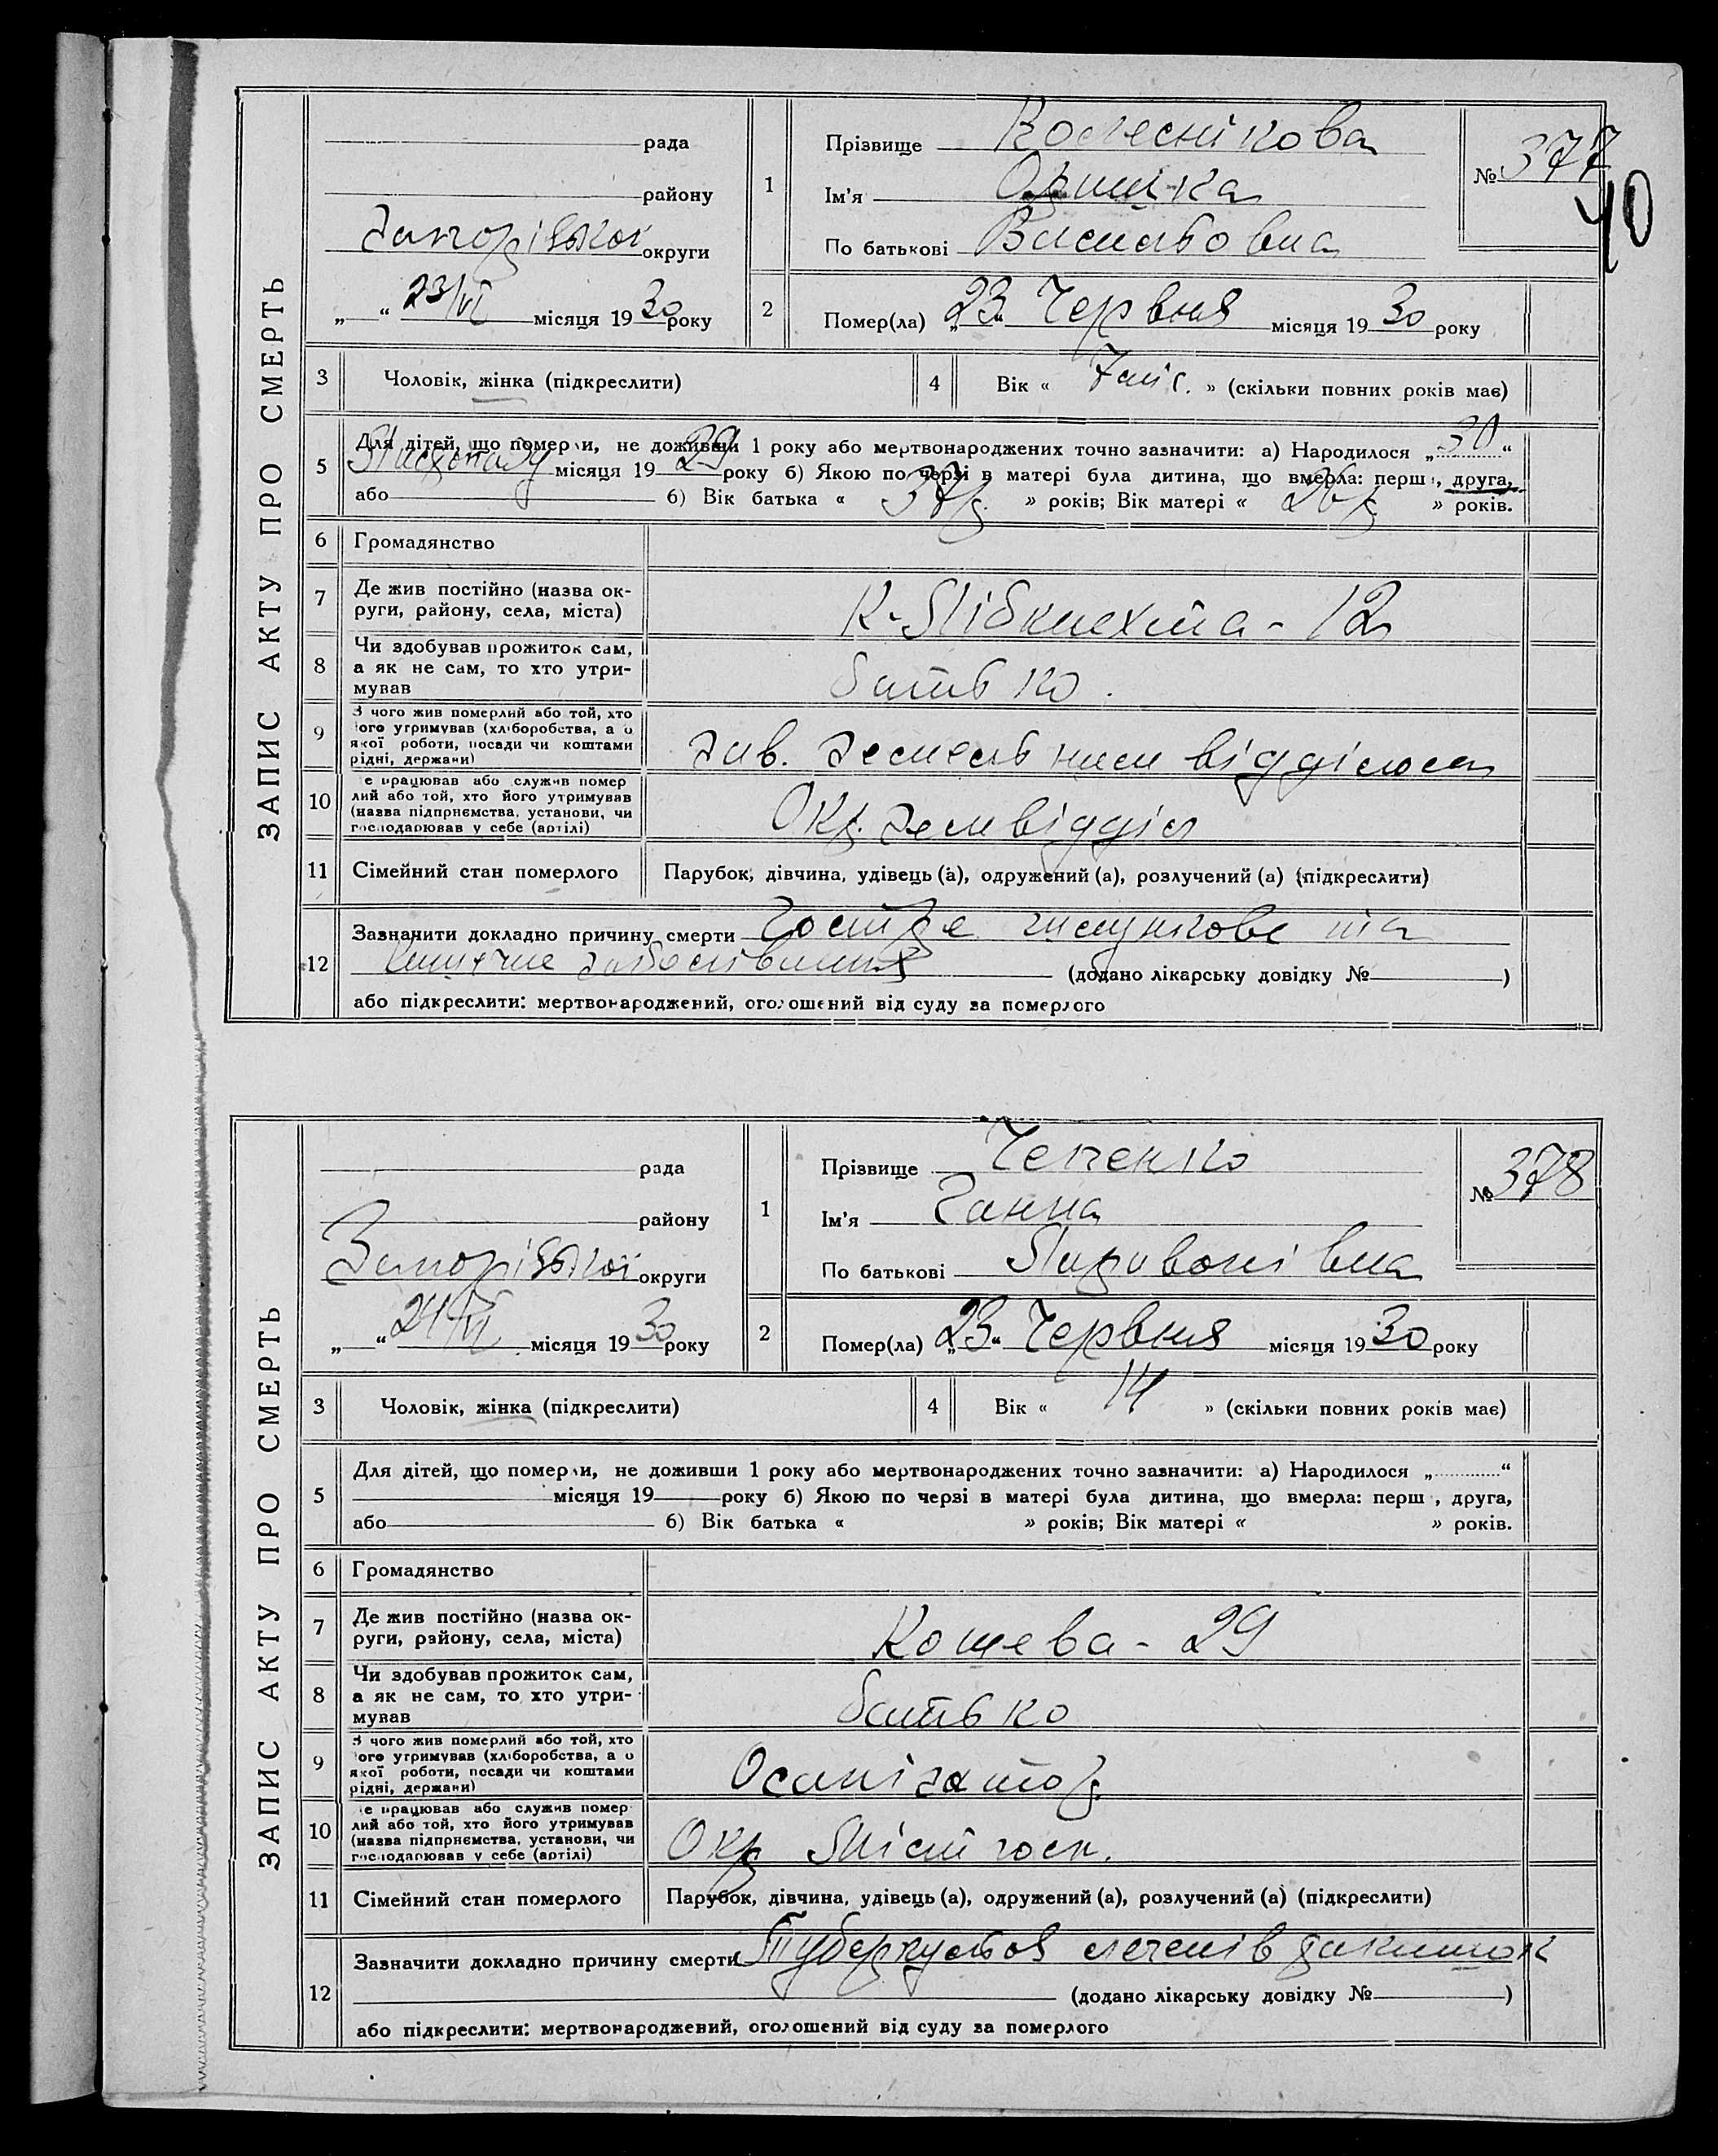 ЗАПИС АКТУ ПРО СМЕРТЬ
рада
району
Запоріжської округи
„ “ 23/VI місяця 1930 року
1
Прізвище Колеснікова
Ім'я
По батькові
№ 377
40
2
Помер(ла) „23“ Червня місяця 1930 року
3 Чоловік, жінка (підкреслити)
4 Вік « 7 міс. » (скільки повних років має)
5 Для дітей, що померли, не доживши 1 року або мертвонароджених точно зазначити: а) Народилося „30“
Листопаду місяця 1929 року б) Якою по черзі в матері була дитина, що вмерла: перша, друга,
або б) Вік батька « 37 р. » років; Вік матері « 26 р. » років.
6 Громадянство
7 Де жив постійно (назва округи, району, села, міста)
К-Лібкнехта - 12
8 Чи здобував прожиток сам, а як не сам, то хто утримував
батько.
9 З чого жив померлий або той, хто його утримував (хліборобства, а о якої роботи, посади чи коштами рідні, держави)
Зав. земельним відділом
10 Де працював або служив померлий або той, хто його утримував (назва підприємства, установи, чи господарював у себе (артілі)
Окр. земвідділ
11 Сімейний стан померлого
Парубок, дівчина, удівець (а), одружений (а), розлучений (а) (підкреслити)
12 Зазначити докладно причину смерти Гостре шлункове та
кишечне заболівання (додано лікарську довідку № )
або підкреслити: мертвонароджений, оголошений від суду за померлого
ЗАПИС АКТУ ПРО СМЕРТЬ
рада
району
Запоріжської округи
„ “ 24/VI місяця 1930 року
1
Прізвище Чепенко
Ім'я Ганна
По батькові Ларивонівна
№ 378
2
Помер(ла) „23“ Червня місяця 1930 року
3 Чоловік, жінка (підкреслити)
4 Вік « 14 » (скільки повних років має)
5 Для дітей, що померли, не доживши 1 року або мертвонароджених точно зазначити: а) Народилося „ “
місяця 19 року б) Якою по черзі в матері була дитина, що вмерла: перш , друга,
або б) Вік батька « » років; Вік матері « » років.
6 Громадянство
7 Де жив постійно (назва округи, району, села, міста)
Кошева - 29
8 Чи здобував прожиток сам, а як не сам, то хто утримував
батько
9 З чого жив померлий або той, хто його утримував (хліборобства, а о якої роботи, посади чи коштами рідні, держави)
Асанізатор
10 Де працював або служив померлий або той, хто його утримував (назва підприємства, установи, чи господарював у себе (артілі)
Окр Містгосп.
11 Сімейний стан померлого
Парубок, дівчина, удівець (а), одружений (а), розлучений (а) (підкреслити)
12 Зазначити докладно причину смерти Туберкульоз легенів
(додано лікарську довідку № )
або підкреслити: мертвонароджений, оголошений від суду за померлого